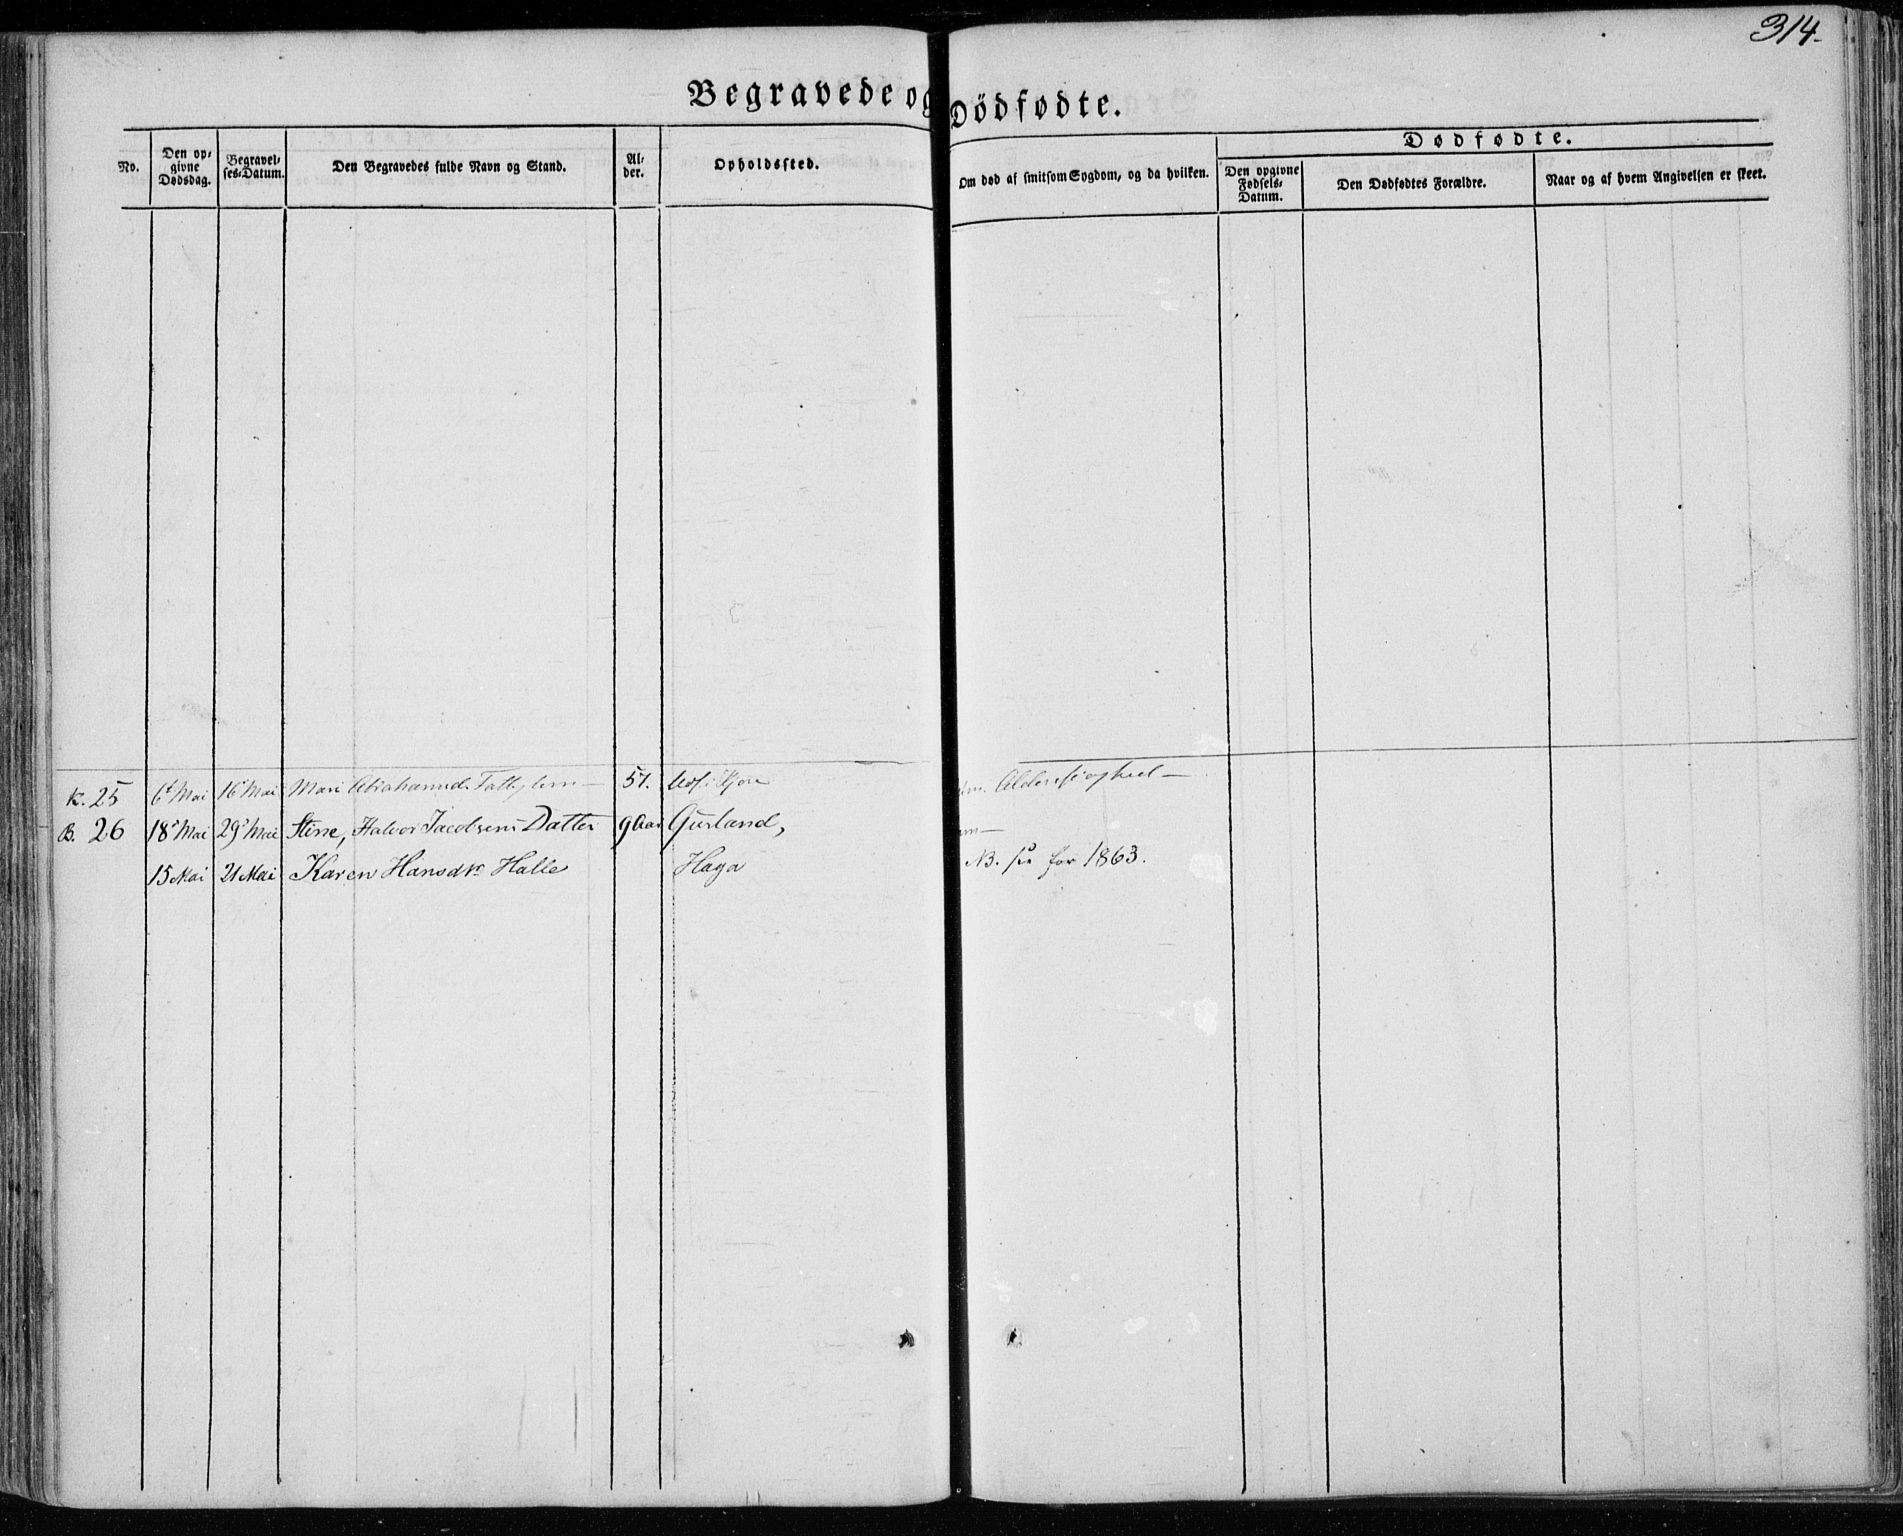 314.
Begravede og Dödfødte.
Dødfødte.
No. Den opgivne Dødsdag. Begravelses-Datum. Den Begravedes fulde Navn og Stand. Alder. Opholdssted. Om død af smitsom Sygdom, og da hvilken. Den opgivne Fødsels-Datum. Den Dødfødtes Forældre. Naar og af hvem Angivelsen er skeet.
K. 25 6t Mai 16t Mai Mari Abrahamsd. 57.
B. 26 18de Mai 29de Mai Stine, Halvor Jacobsens Datter 9 Aar Gusland,
15 Mai 21 Mai Karen Hansdtr Halle Haga NB. se for 1863.